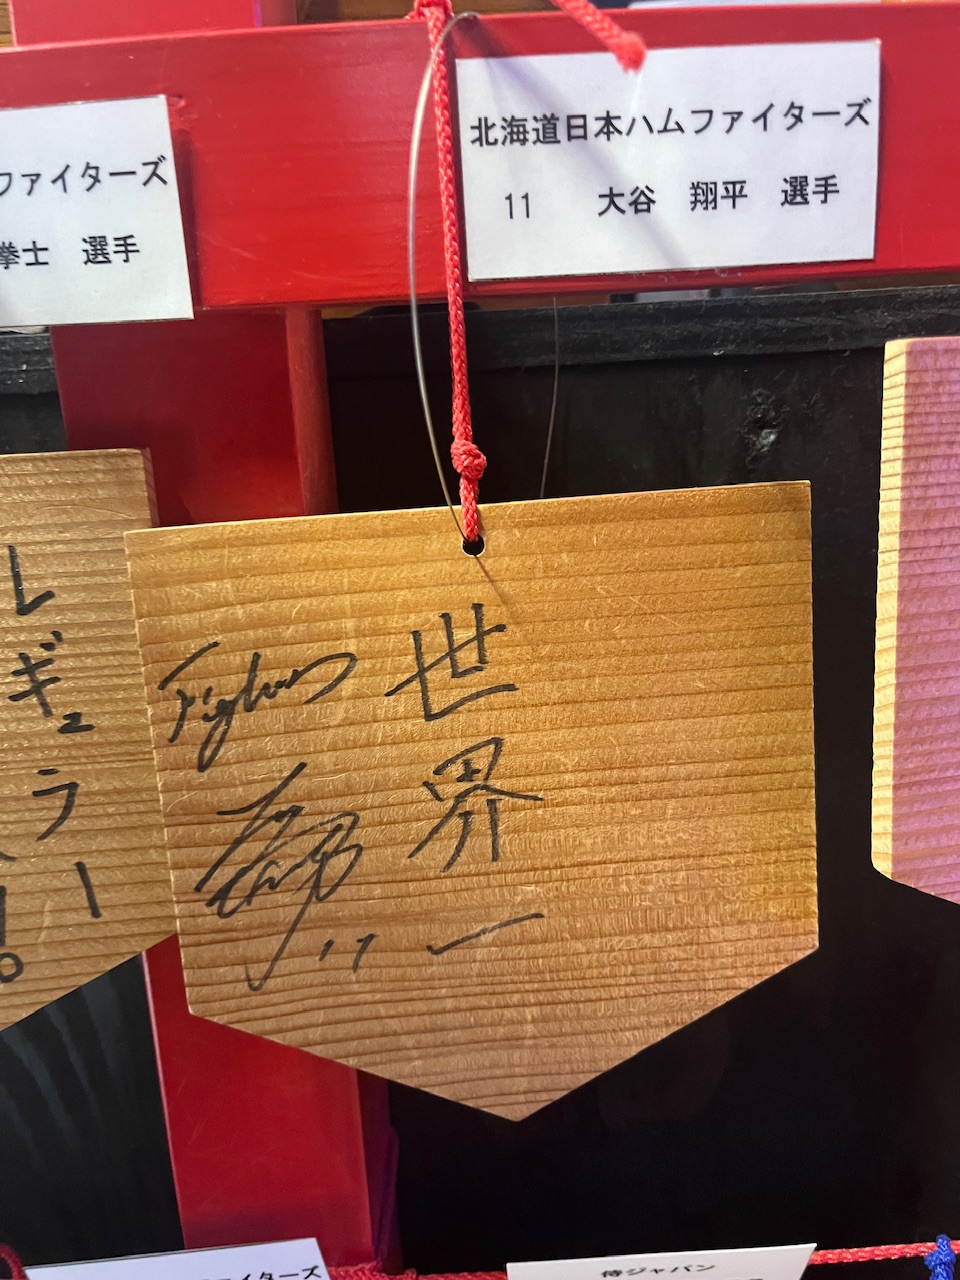 北海道日本ハムファイターズ
11 大谷 翔平 選手
ファイターズ
拳士 選手
世界一
Fighters
17
レギュラー
ファイターズ
侍ジャパン